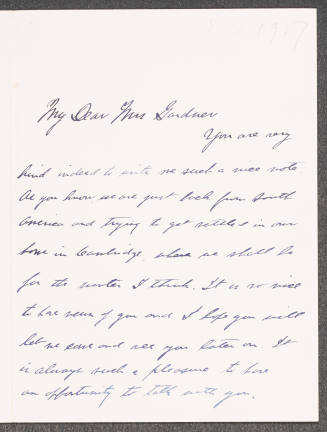 1917
My Dear Mrs Gardner
You are very
kind indeed to write me such a nice note
As you know we are just back from South
America and trying to get settled in our
home in Cambridge, where we shall be
for the winter I think. It is so nice
to have news of you and I hope you will
let me come and see you later on. It
is always such a pleasure to have
an opportunity to talk with you.